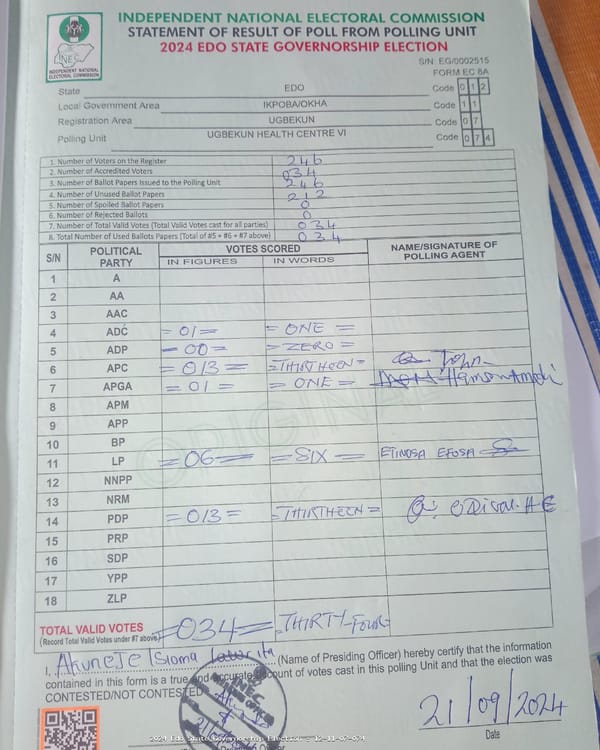 INDEPENDENT NATIONAL ELECTORAL COMMISSION
STATEMENT OF RESULT OF POLL FROM POLLING UNIT
2024 EDO STATE GOVERNORSHIP ELECTION
INEC
INDEPENDENT NATIONAL ELECTORAL COMMISSION
S/N: EG/0002515
FORM EC 8A
State EDO Code 0 1 2
Local Government Area IKPOBA/OKHA Code 1 1
Registration Area UGBEKUN Code 0 7
Polling Unit UGBEKUN HEALTH CENTRE VI Code 0 7 4
1. Number of Voters on the Register 246
2. Number of Accredited Voters 034
3. Number of Ballot Papers Issued to the Polling Unit 246
4. Number of Unused Ballot Papers 212
5. Number of Spoiled Ballot Papers 0
6. Number of Rejected Ballots 0
7. Number of Total Valid Votes (Total Valid Votes cast for all parties) 034
8. Total Number of Used Ballots Papers (Total of #5 + #6 + #7 above) 034
S/N POLITICAL PARTY VOTES SCORED NAME/SIGNATURE OF POLLING AGENT
IN FIGURES IN WORDS
1 A
2 AA
3 AAC
4 ADC =01= =ONE=
5 ADP =00= =ZERO=
6 APC =013= =THIRTHEEN= John
7 APGA =01= =ONE=
8 APM
9 APP
10 BP
11 LP =06= =SIX= ETINOSA EFOSA
12 NNPP
13 NRM
14 PDP =013= =THIRTHEEN=
15 PRP
16 SDP
17 YPP
18 ZLP
ORIGINAL
TOTAL VALID VOTES =034= =THIRTY-FOUR
(Record Total Valid Votes under #7 above)
I, Akuneje Isioma (Name of Presiding Officer) hereby certify that the information
contained in this form is a true and accurate account of votes cast in this polling Unit and that the election was
CONTESTED/NOT CONTESTED
INEC
21/09/2024
Date
2024 Edo State Governorship Election - 12-11-07-074